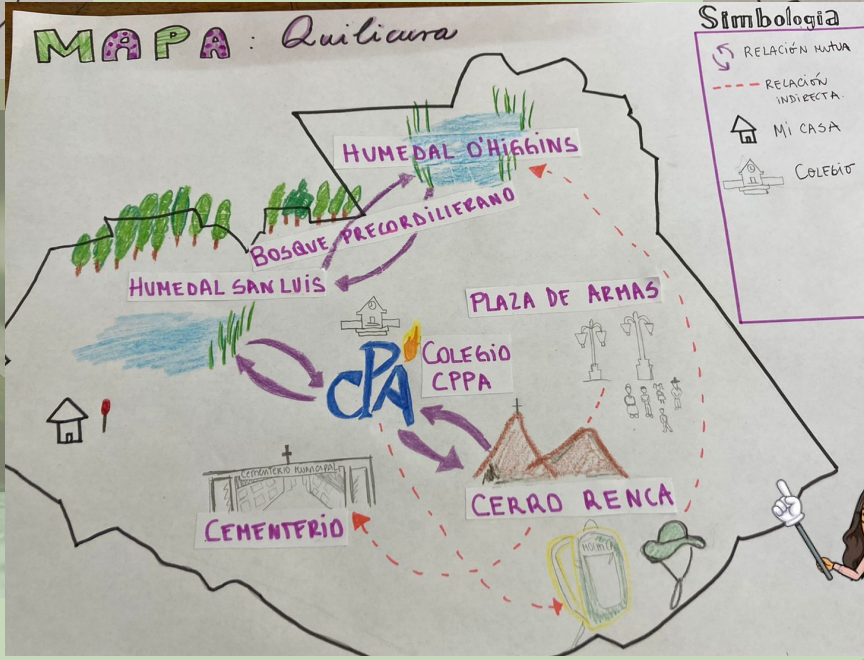 MAPA: Quilicura
Simbologia
RELACIÓN MUTUA
RELACIÓN
INDIRECTA.
Mi CASA
COLEGIO
HUMEDAL O'HiGGiNS
BOSQUE PRECORDILLERANO
HUMEDAL SAN LUIS
PLAZA DE ARMAS
COLEGIO
CPPA
CPA
CEMENTERIO MUNICIPAL
CERRO RENCA
CEMENTERIO